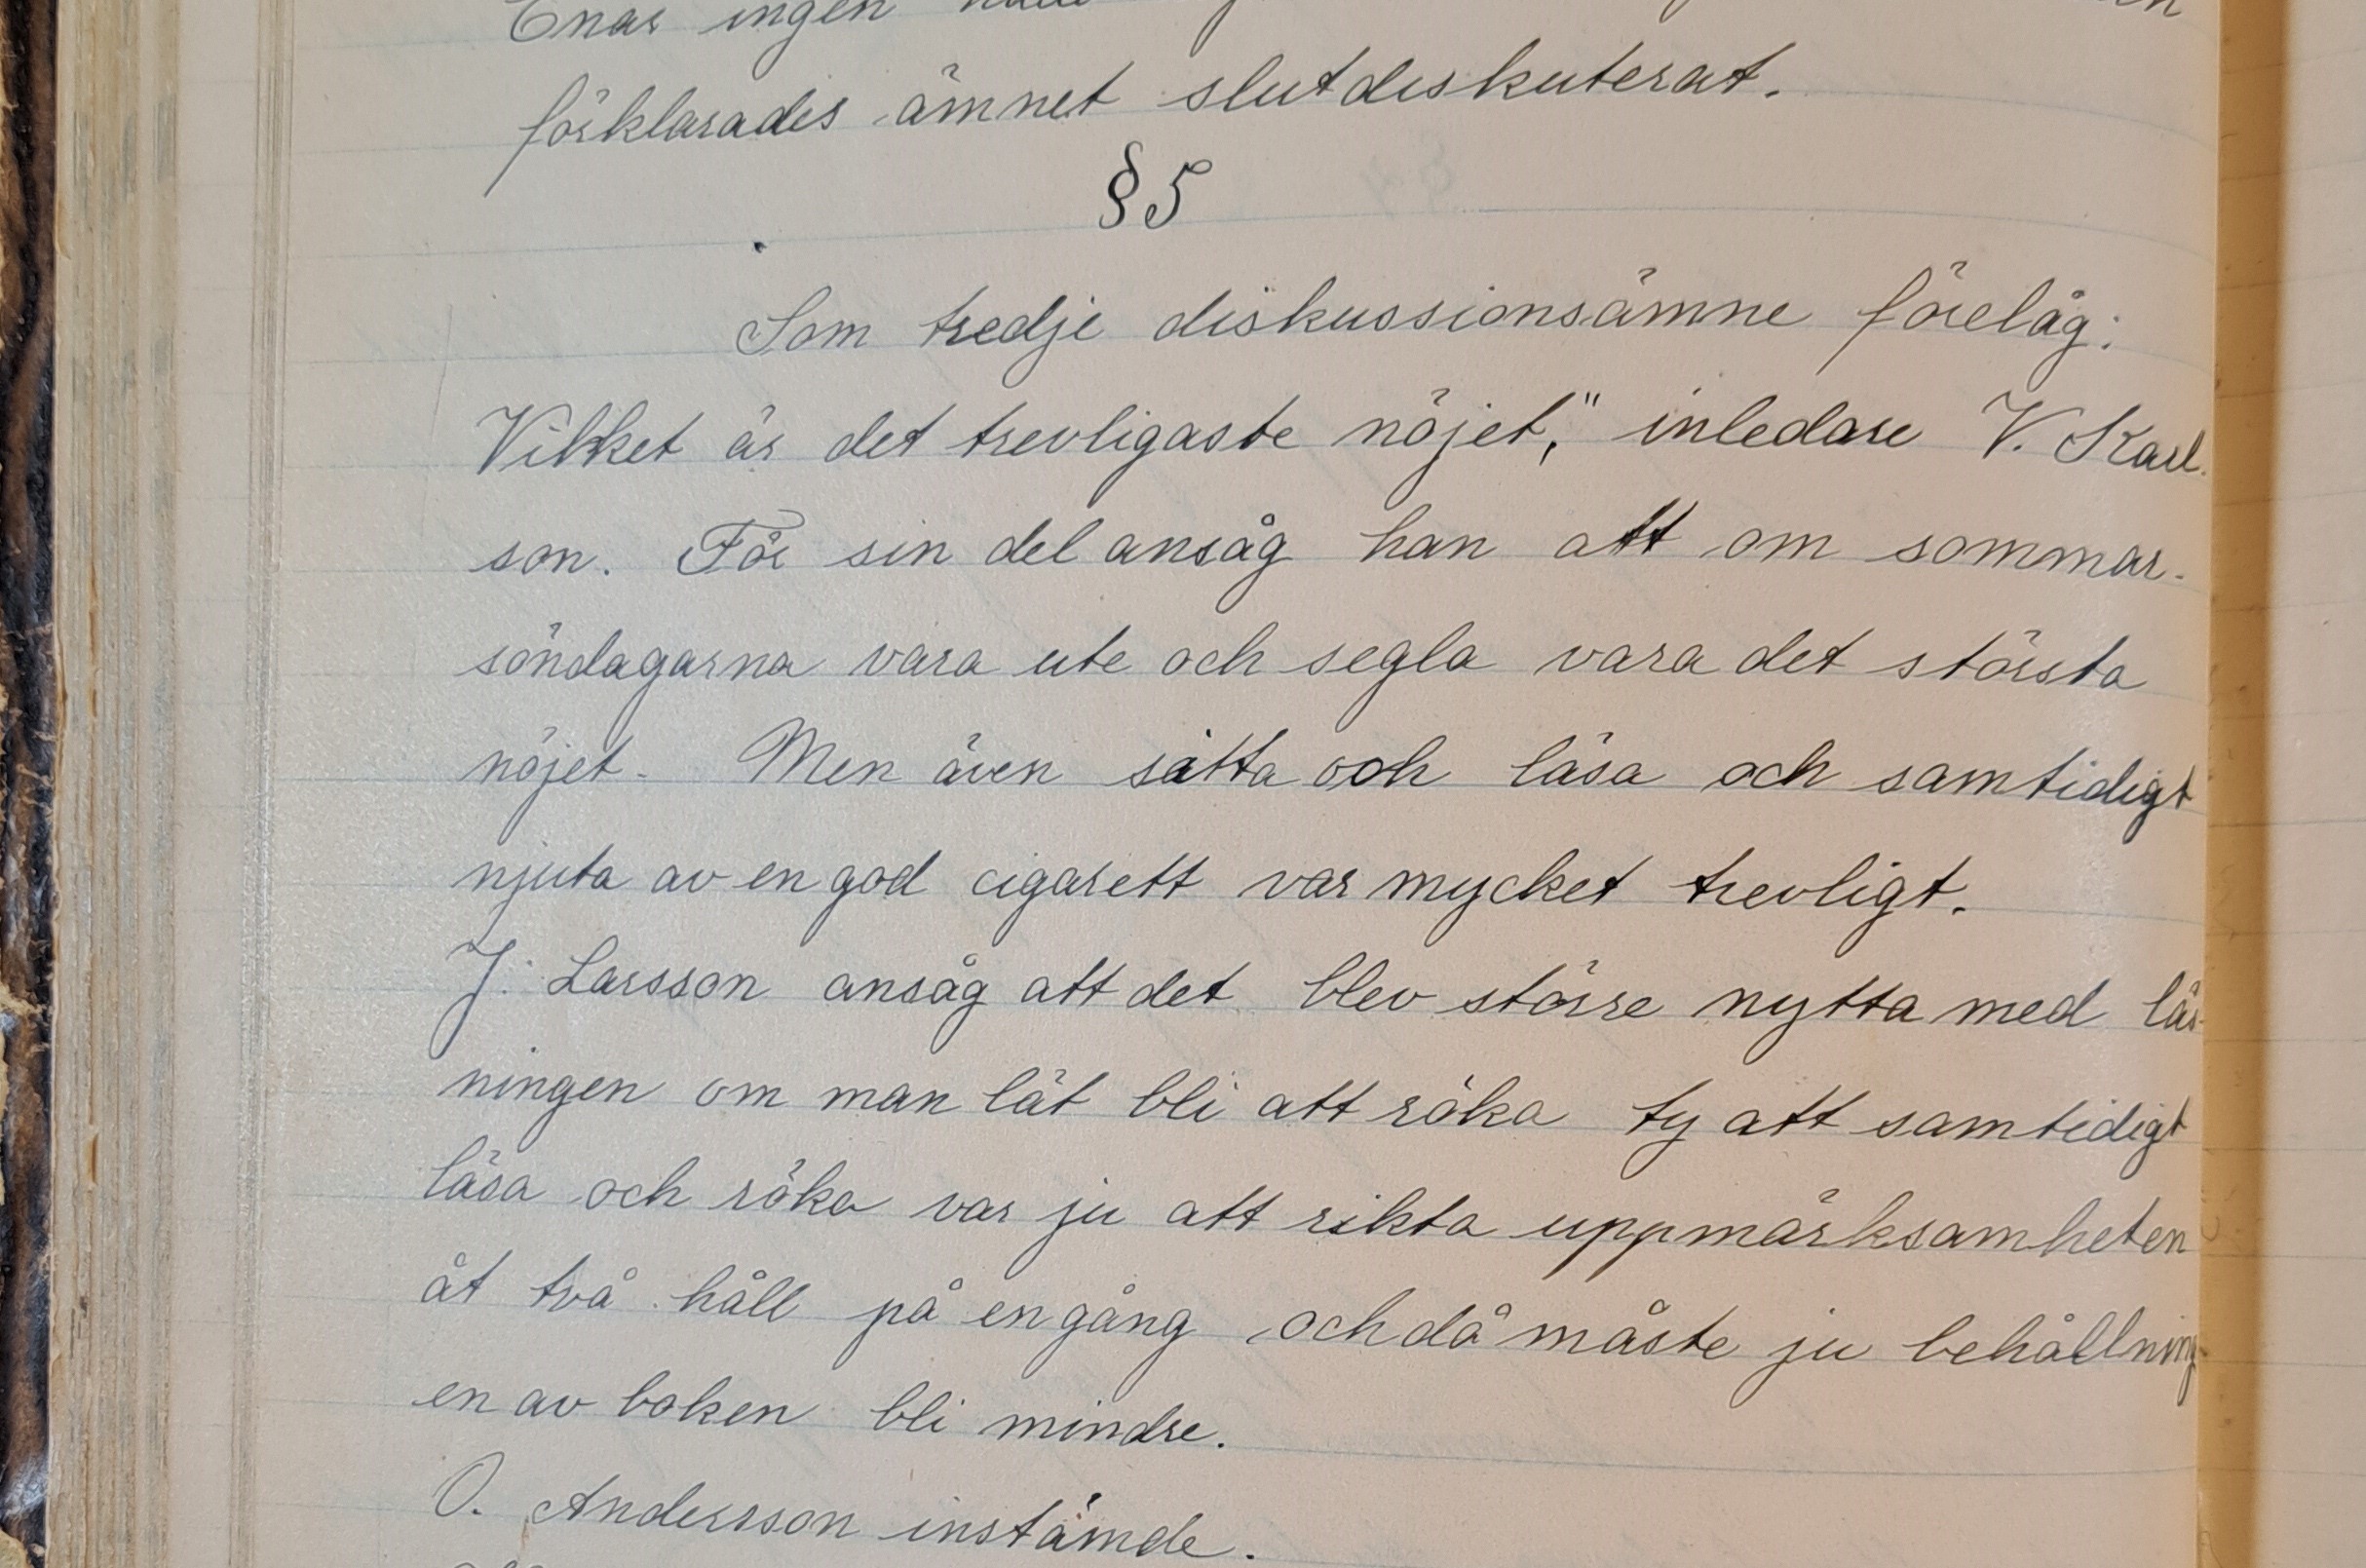 Enar ingen
förklarades ämnet slutdiskuterat.
§5
Som tredje diskussionsämne förelåg:
Vilket är det trevligaste nöjet," inledare V. Karl-
son. För sin del ansåg han att om sommar-
söndagarna vara ute och segla vara det största
nöjet. Men även sitta och läsa och samtidigt
njuta av en god cigarett var mycket trevligt.
J. Larsson ansåg att det blev större nytta med läs-
ningen om man lät bli att röka ty att samtidigt
läsa och röka var ju att rikta uppmärksamheten
åt två håll på en gång och då måste ju behållning-
en av boken bli mindre.
O. Andersson instämde.